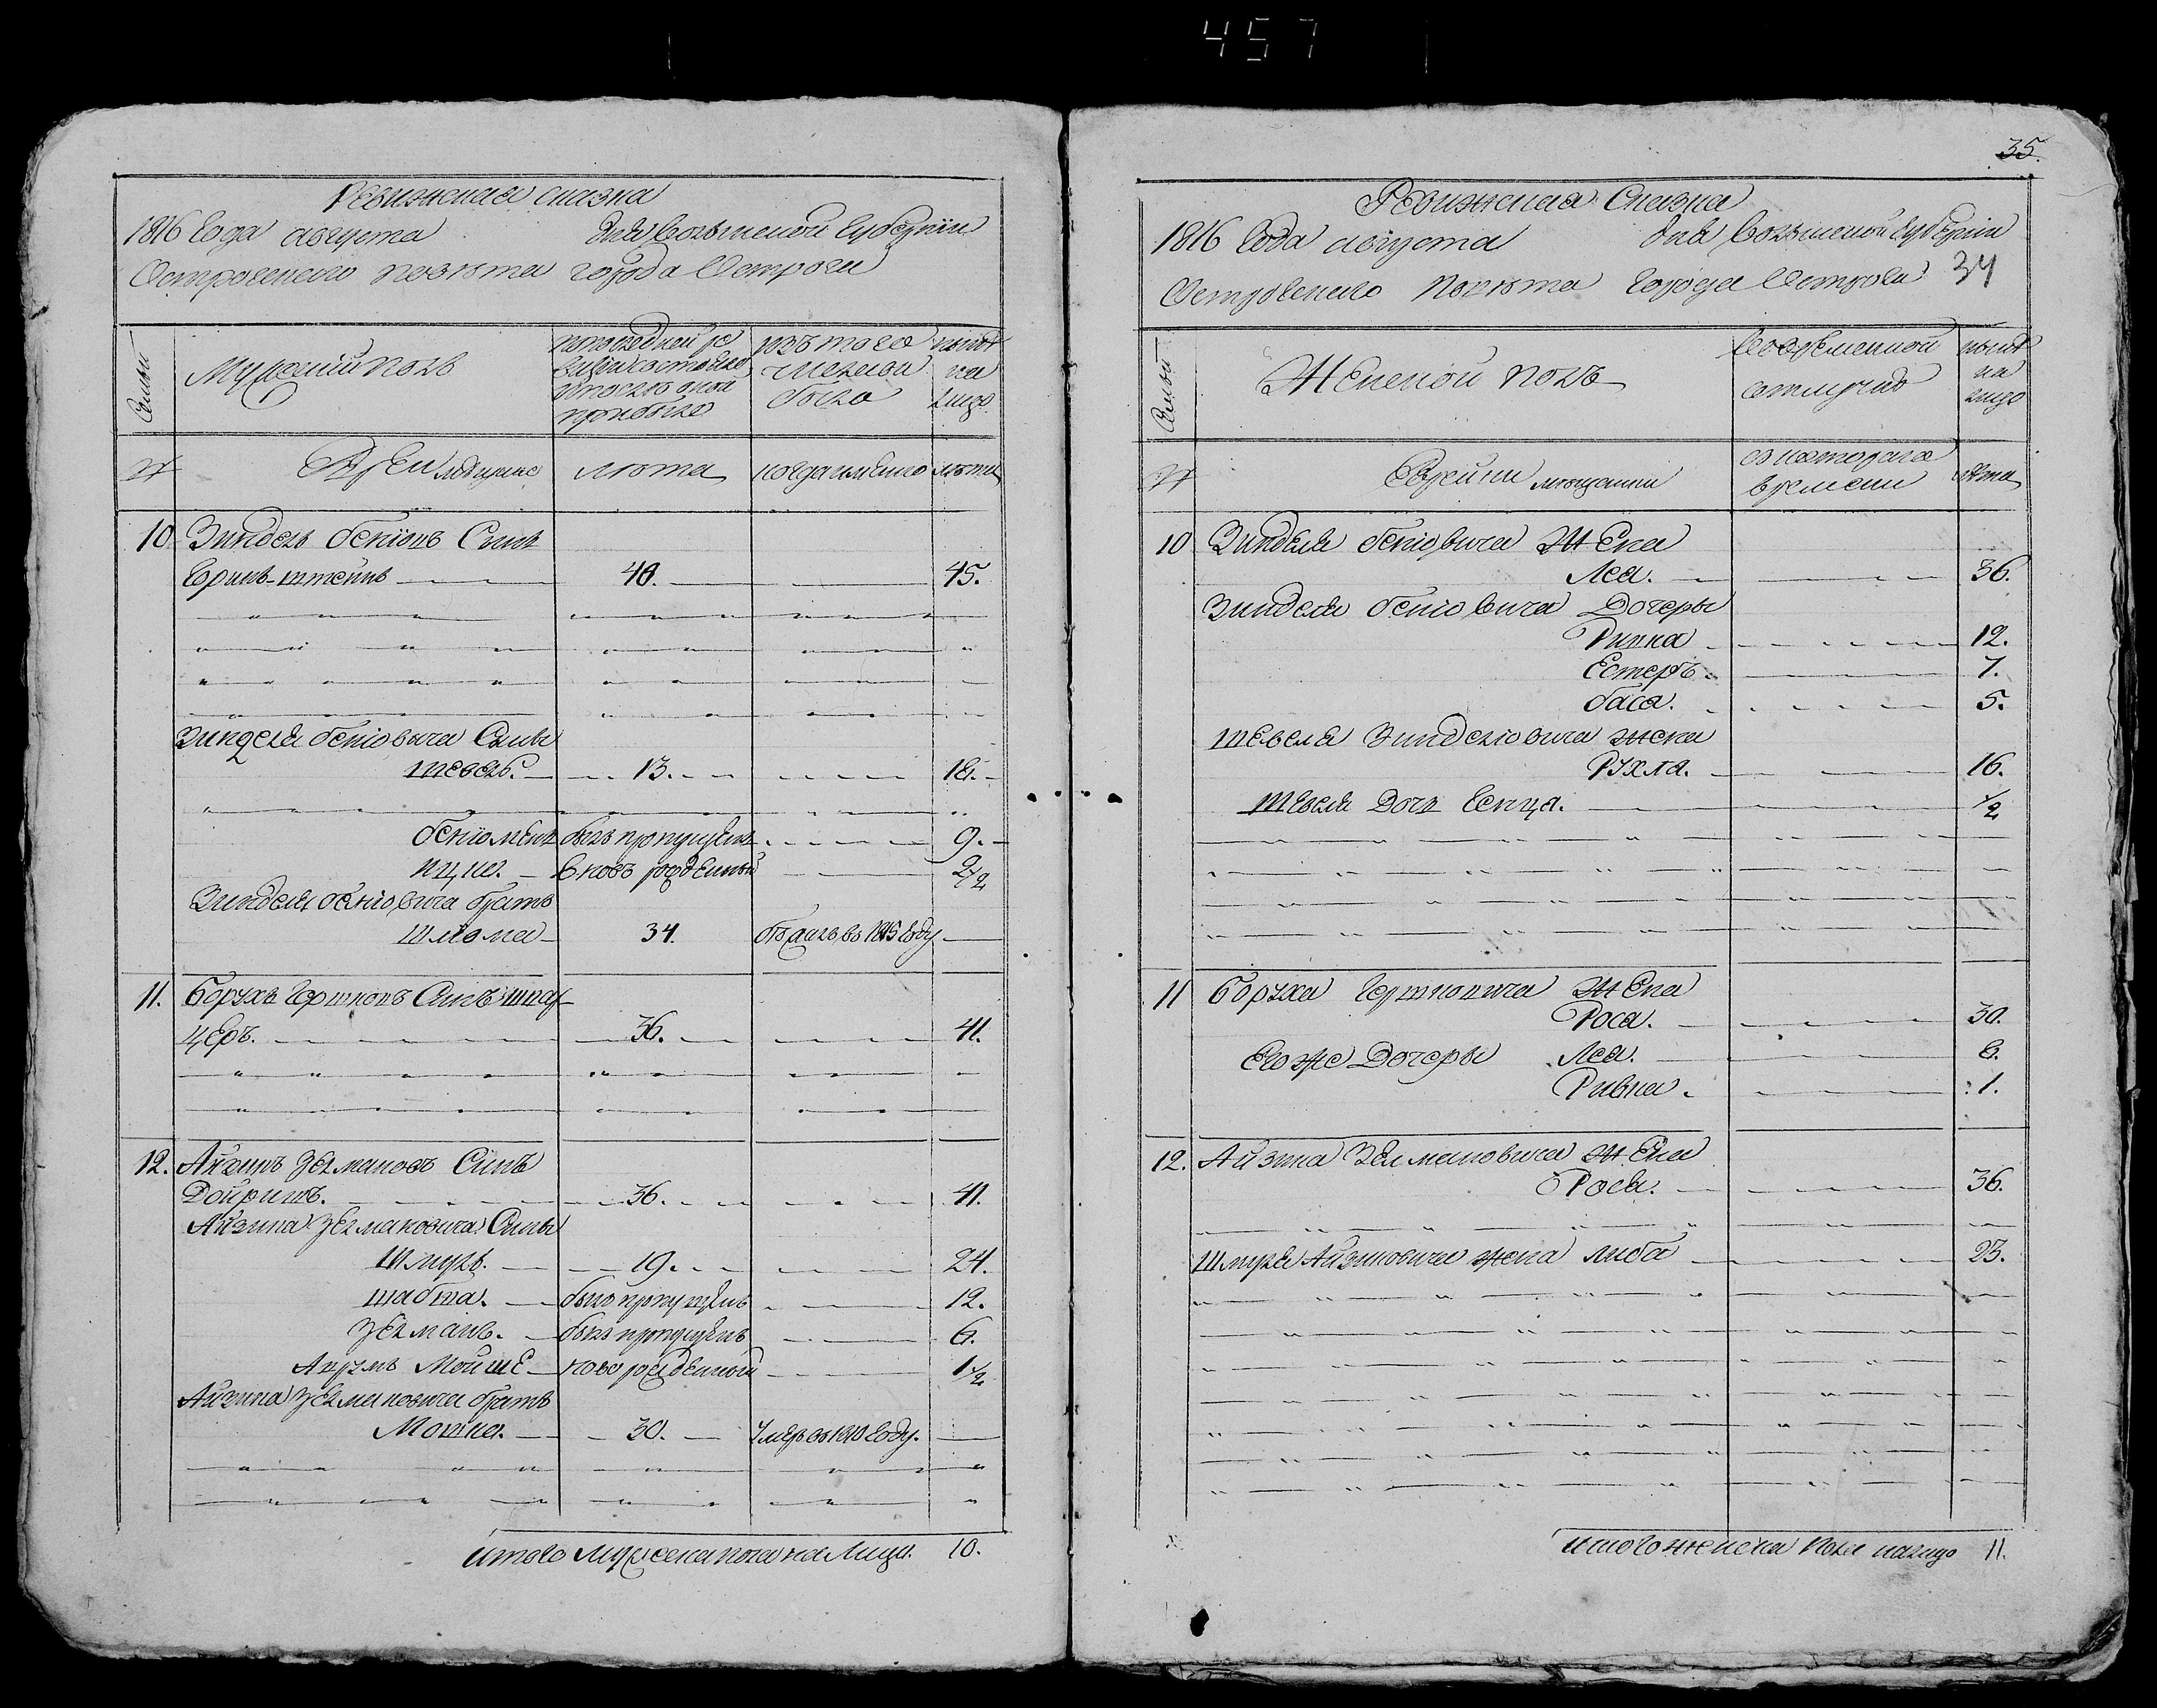 457
Ревижская сказка
1816 Года августа дня Волынской Губернии
Острожского повета города Острога
Семьи
Мужеский полъ
по последней ре
визіи состояло
и после оной
прибыло
изъ того
числа
было
ныне
на
лицо
№
Евреи мещане
лета
когда именно
лета
10 Зиндель беніовъ Сынъ
Гринъ-штейнъ 40. 45.
Зинделя беніовича Сыны
шевель. 13. 18.
беніоминъ былъ пропущенъ 9.
ицко. вновь рожденный 2 1/2
Зинделя беніовича братъ
шлома 34. бежалъ въ 1815 Году
11. Борухъ Гершковъ Сынъ шпа
церъ. 36. 41.
12. Айзинъ Зелмановъ Сынъ
Дойришъ. 36. 41.
Айзина Зелмановича Сыны
Шмуль. 19. 24.
шабша. былъ пропущенъ 12.
Зелманъ. былъ пропущенъ 6.
Абрумъ Мойше ново рожденный 1 1/2
Айзина Зелмановича братъ
Мошко. 30. Умеръ въ 1810 Году.
итого Мужеска пола на Лицо. 10.
35.
Ревижская Сказка
1816 Года августа дня Волынской Губерніи
Острожского Повета Города Острога 34
Семьи
Женской полъ
Во временной
отлучке
ныне
на
лицо
№
Еврейки мещанки
съ котораго
времени
лета
10 Зинделя беніовича Жена
Лея. 36.
Зинделя беніовича Дочеры
Ривка 12.
Естеръ. 7.
баса. 5.
шевеля Зинделіовича жена
Рухля. 16.
шевеля Дочь Генца. 1/2
11 Боруха Гершковича Жена
Роса. 30.
Его же Дочеры Лея. 6.
Ривка. 1.
12. Айзина Зелмановича Жена
Роса. 36.
Шмуля Айзиковича жена либа 23.
итого женска Пола налицо 11.